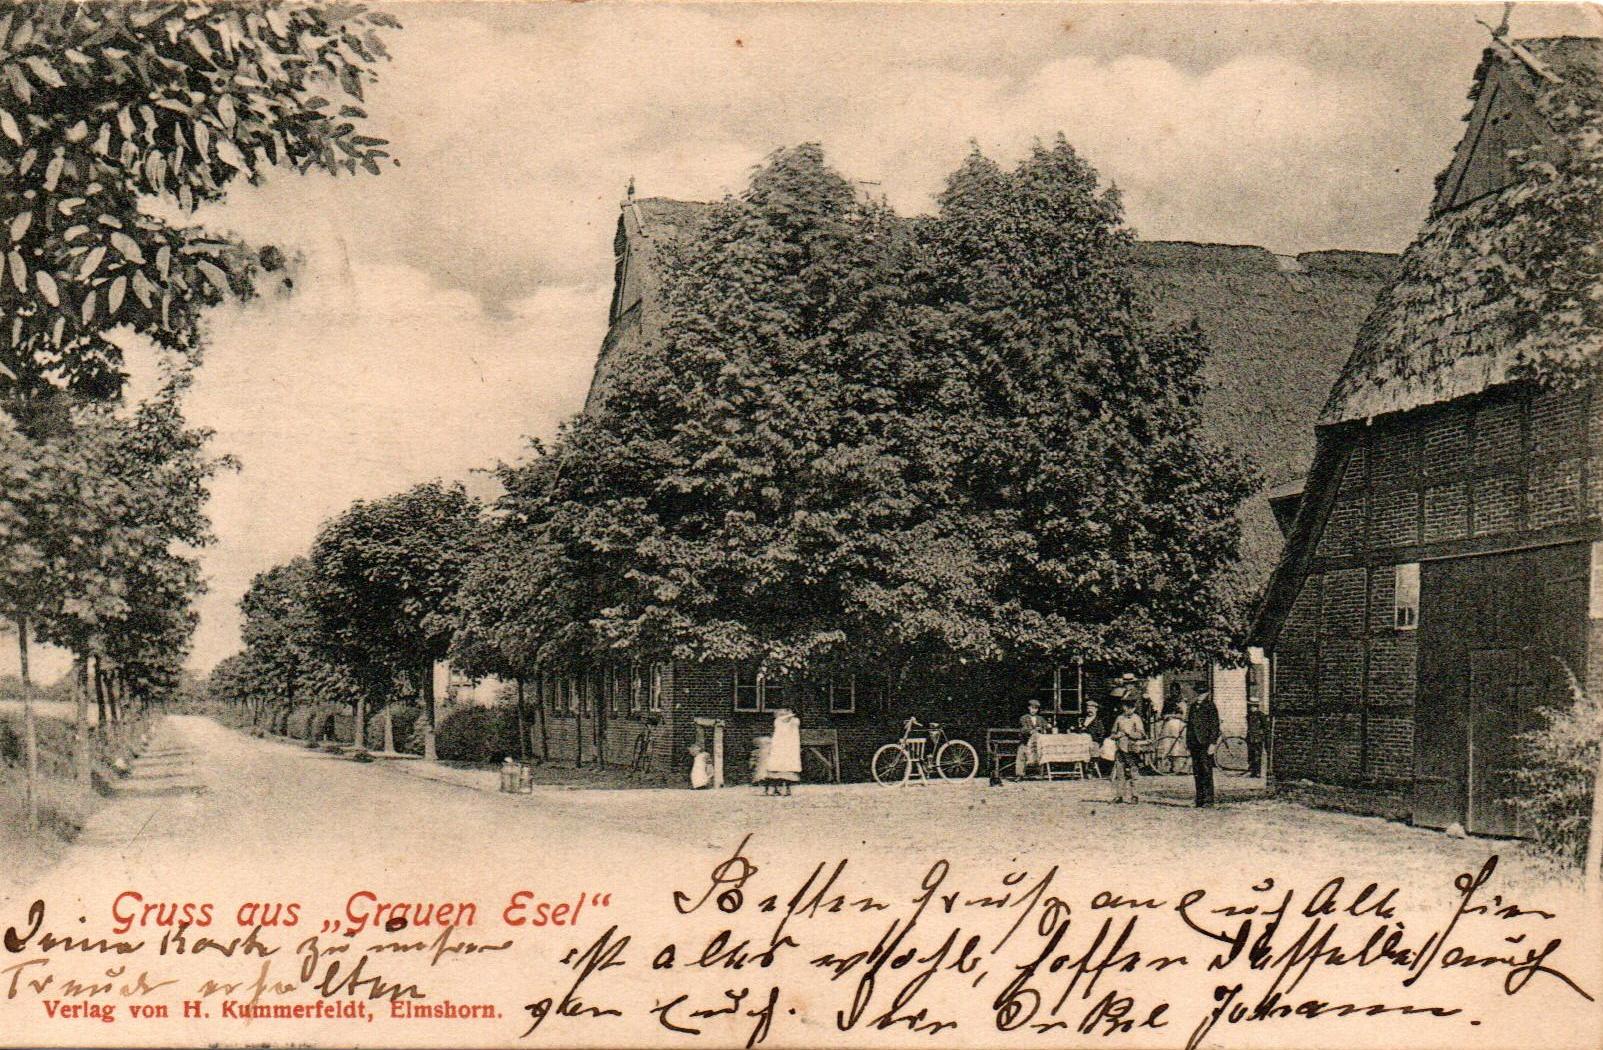 Gruss aus „Grauen Esel“
Deine Karte zu unserer
Freude erhalten
Verlag von H. Kummerfeldt, Elmshorn.
Besten Gruß an Euch Alle. Hier
ist alles wohl, hoffen dasselbe auch
von Euch. Dein Onkel Johann.